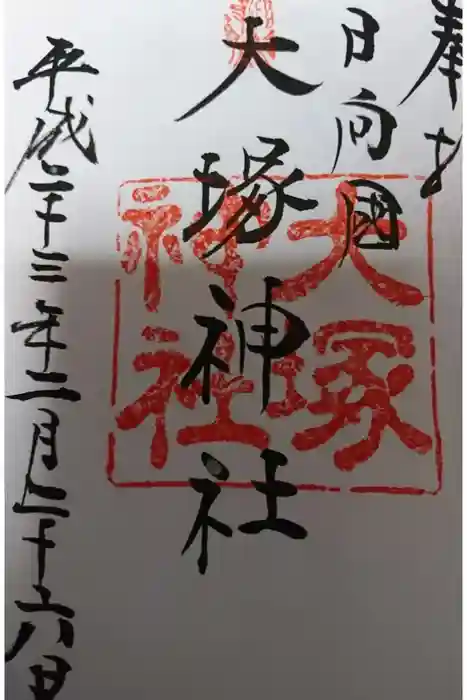 奉拝
日向國
大塚神社
平成二十三年二月二十六日
大塚
神社